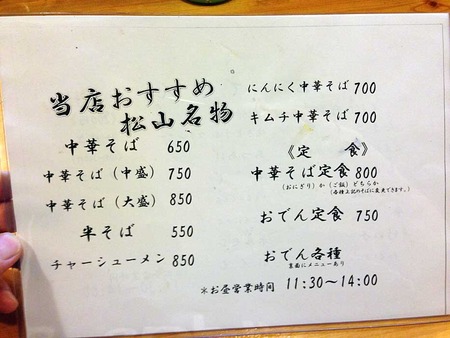 当店おすすめ
松山名物
中華そば 650
中華そば（中盛） 750
中華そば（大盛） 850
半そば 550
チャーシューメン 850
にんにく中華そば 700
キムチ中華そば 700
《定　食》
中華そば定食 800
（おにぎり）か（ご飯）どちらか
（各種上記のそばに変更できます。）
おでん定食 750
おでん各種
裏面にメニューあり
※お昼営業時間 11:30～14:00